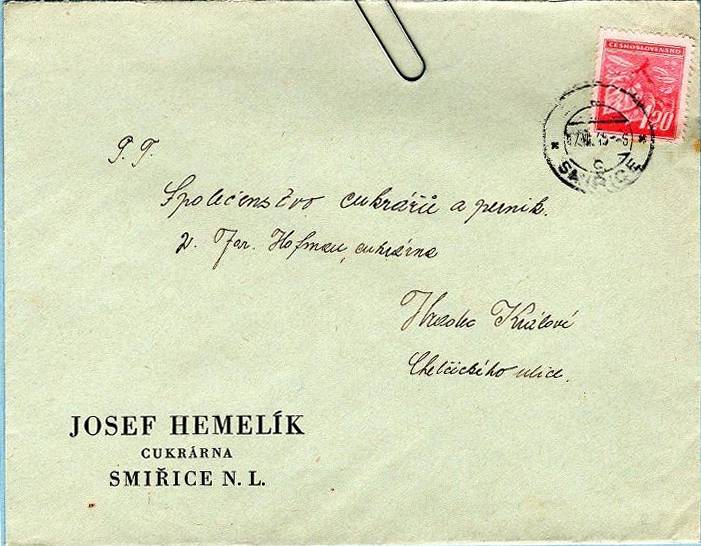 ČESKOSLOVENSKO
1.20
SMIŘICE
P. T.
Společenstvo cukrářů a perník.
Jar. Hofman, cukrárna
Hradec Králové
Chelčického ulice.
JOSEF HEMELÍK
CUKRÁRNA
SMIŘICE N. L.